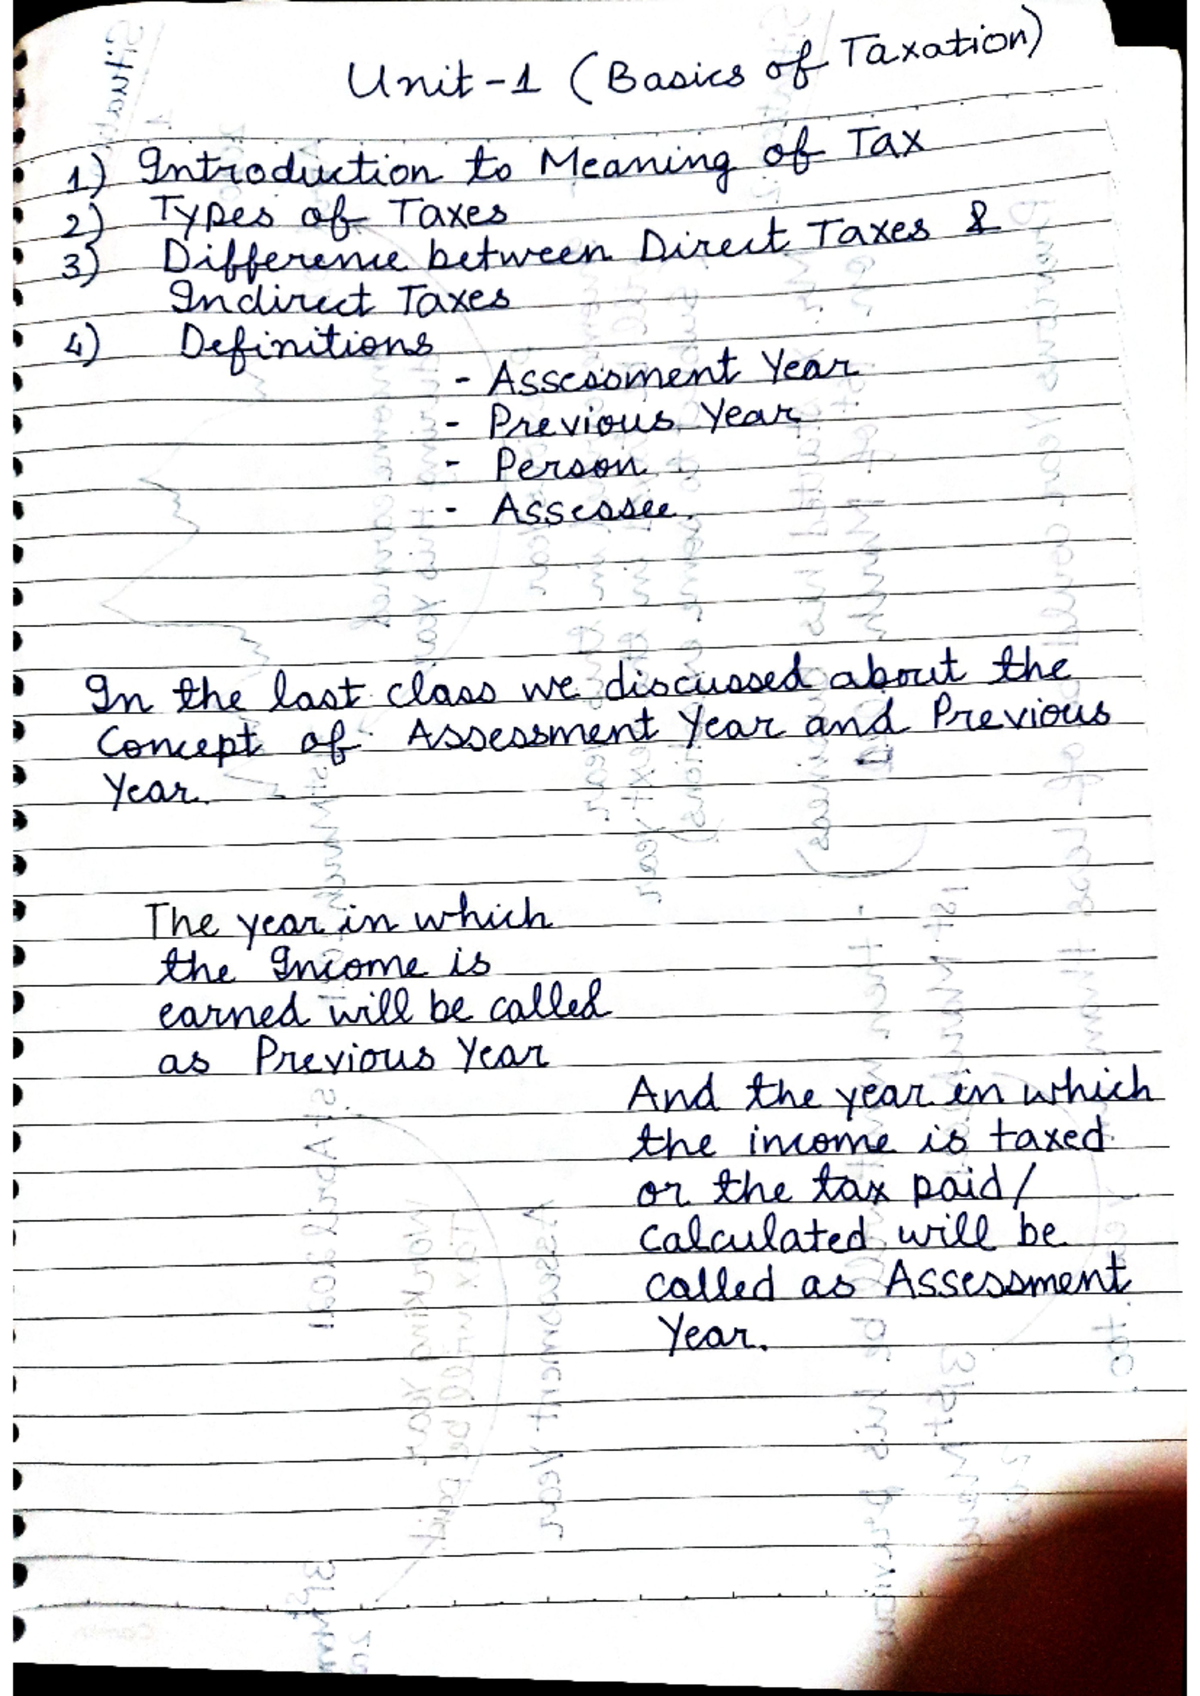 Unit-1 (Basics of Taxation)
1) Introduction to Meaning of Tax
2) Types of Taxes
3) Difference between Direct Taxes &
Indirect Taxes
4) Definitions
- Assessment Year
- Previous Year
- Person
- Assessee.
In the last class we discussed about the
Concept of Assessment Year and Previous
Year.
The year in which
the Income is
earned will be called
as Previous Year
And the year in which
the income is taxed
or the tax paid/
calculated will be
called as Assessment
Year.